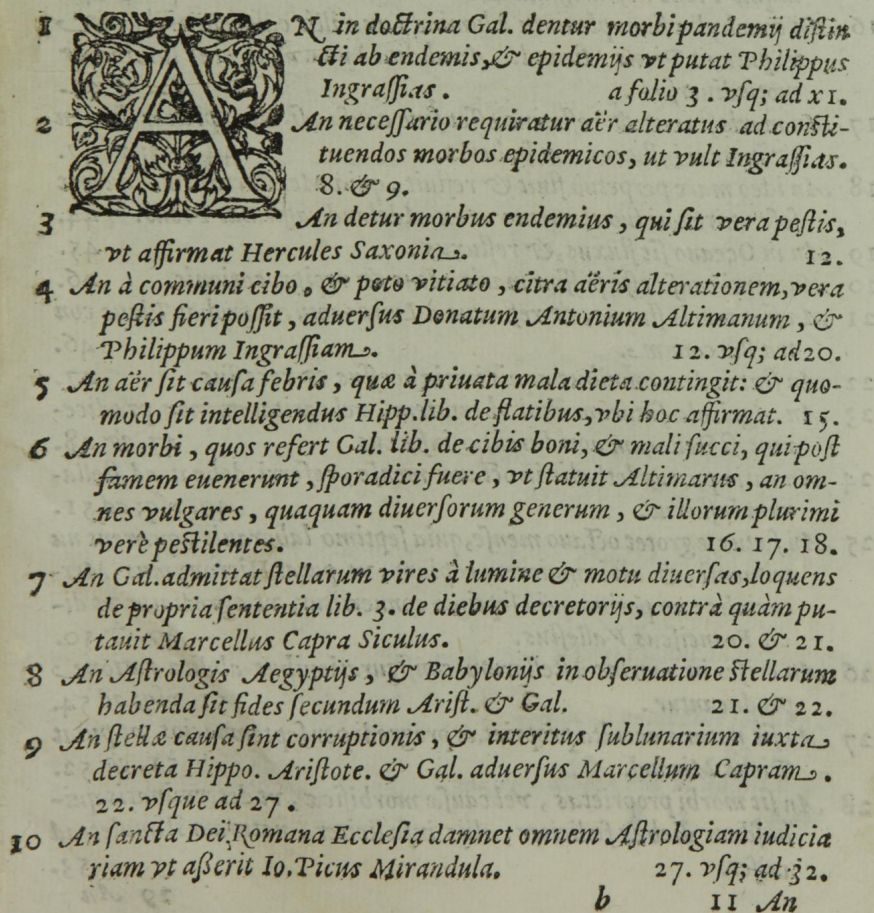 1 AN in doctrina Gal. dentur morbi pandemij distin
cti ab endemis, & epidemijs vt putat Philippus
Ingrassias. a folio 3. vsq; ad xi.
2 An necessario requiratur aër alteratus ad consti-
tuendos morbos epidemicos, ut vult Ingrassias.
8. & 9.
3 An detur morbus endemius, qui sit vera pestis,
vt affirmat Hercules Saxonia. 12.
4 An à communi cibo, & poto vitiato, citra aëris alterationem, vera
pestis fieri possit, aduersus Donatum Antonium Altimanum, &
Philippum Ingrassiam. 12. vsq; ad 20.
5 An aër sit causa febris, quæ à priuata mala dieta contingit: & quo-
modo sit intelligendus Hipp. lib. de flatibus, vbi hoc affirmat. 15.
6 An morbi, quos refert Gal. lib. de cibis boni, & mali succi, qui post
famem euenerunt, sporadici fuere, vt statuit Altimarus, an om-
nes vulgares, quaquam diuersorum generum, & illorum plurimi
verè pestilentes. 16. 17. 18.
7 An Gal. admittat stellarum vires à lumine & motu diuersas, loquens
de propria sententia lib. 3. de diebus decretorijs, contrà quàm pu-
tauit Marcellus Capra Siculus. 20. & 21.
8 An Astrologis Aegyptijs, & Babylonijs in obseruatione stellarum
habenda sit fides secundum Arist. & Gal. 21. & 22.
9 An stellæ causa sint corruptionis, & interitus sublunarium iuxta
decreta Hippo. Aristote. & Gal. aduersus Marcellum Capram.
22. vsque ad 27.
10 An sancta Dei Romana Ecclesia damnet omnem Astrologiam iudicia
riam vt asserit Io. Picus Mirandula. 27. vsq; ad 32.
b 11 An